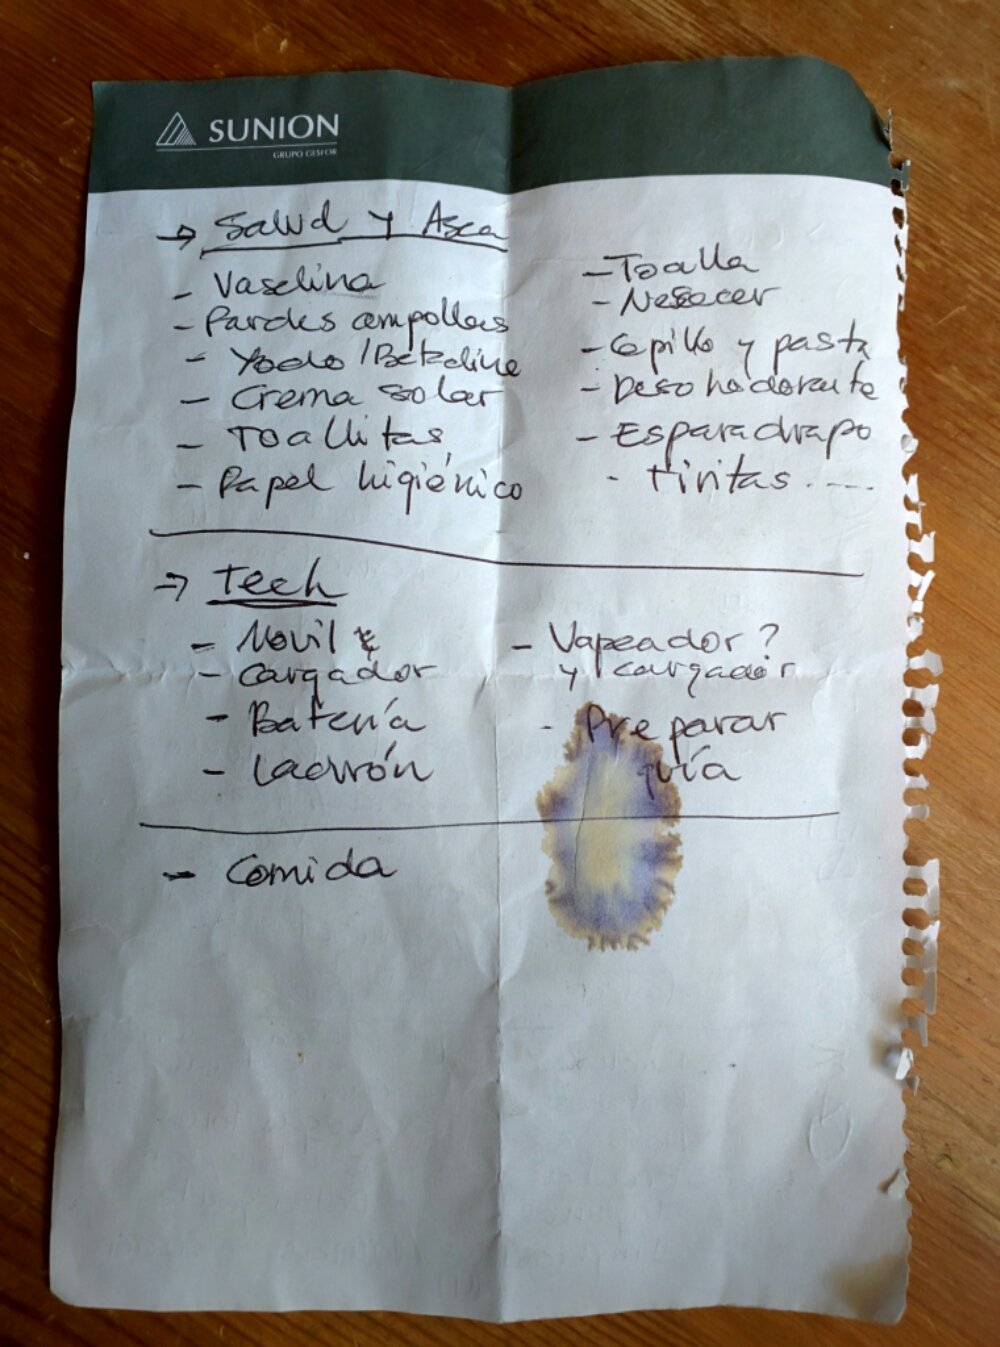 SUNION
GRUPO GESFOR
→ Salud y Asea
- Vaselina
- Pardes ampollas
- Yodo / Betadine
- Crema solar
- Toallitas
- Papel higiénico
- Toalla
- Neseser
- Cepillo y pasta
- Desohadorante
- Esparadrapo
- Tiritas.....
→ Tech
- Movil &
- Cargador
- Batería
- Ladrón
- Vapeador?
y cargador
- Preparar
guía
- Comida